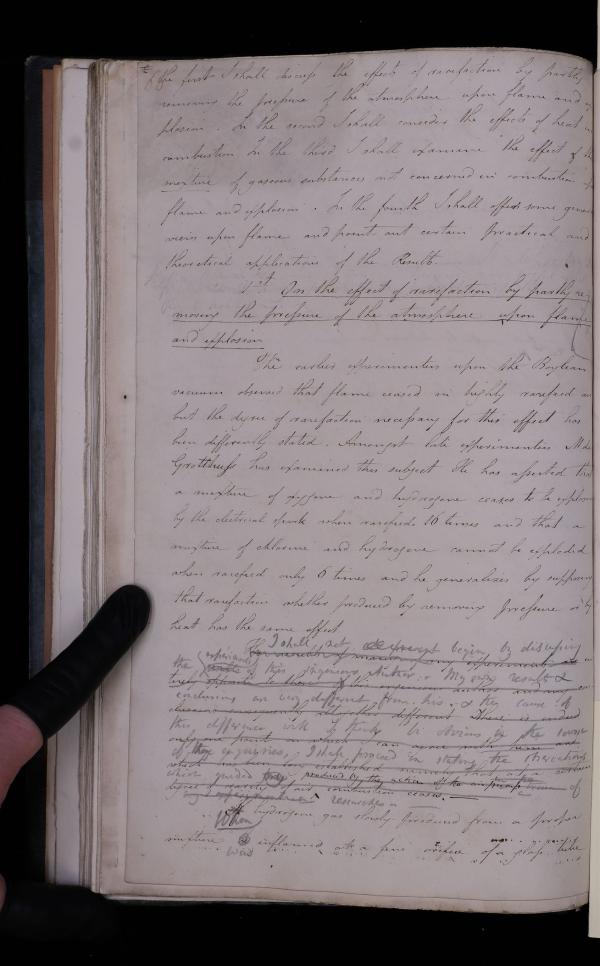 the first I shall discuss the effects of rarefaction by partly
removing the pressure of the atmosphere upon flame and
plosion. In the second I shall consider the effects of heat in
combustion In the third I shall examine the effect of the
mixture of gaseous substances not concerned in combustion
flame and explosion. In the fourth I shall offer some general
views upon flame and point out certain practical and
theoretical applications of the Results.
1st On the effect of rarefaction by partly re
moving the pressure of the atmosphere upon flame
and explosion
The earlier experimenters upon the Boylean
vacuum observed that flame ceased in highly rarefied air
but the degree of rarefaction necessary for this effect has
been differently stated. Amongst late experimenters M. de
Grotthuss has examined this subject He has asserted that
a mixture of oxygene and hydrogene ceases to be explosive
by the electrical spark when rarefied 16 times and that a
mixture of chlorine and hydrogene cannot be exploded
when rarefied only 6 times and he generalises by supposing
that rarefaction whether produced by removing pressure or by
heat has the same effect
I shall not begin by discussing
the experiments of this ingenious Author. My own results &
conclusions are very different from his & the cause of
this difference will I think be obvious in the course
of these enquiries, I shall proceed in stating the observations
which guided my
researches
When hydrogene gas slowly produced from a proper
mixture was inflamed at a fine orifice of a glass tube